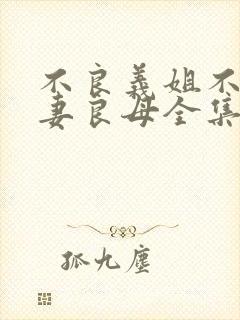 不良義姐不
妻良母全集
孤九塵